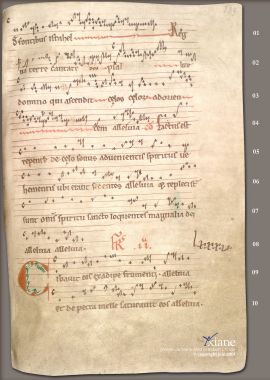 De fontibus israhel
Reg
na terre cantate deo psal
domino qui ascendit celos celor adorien
tem alleluia co Factus est
repente de celo sonus advenientis spiritus ve
hementis ubi erant sedentes alleluia et repleti
sunt omnes spiritu sancto loquentes magnalia dei
alleluia alleluia
Cibavit eos ex adipe frumenti alleluia
et de petra melle saturavit eos alleluia
01
02
03
04
05
06
07
08
09
10